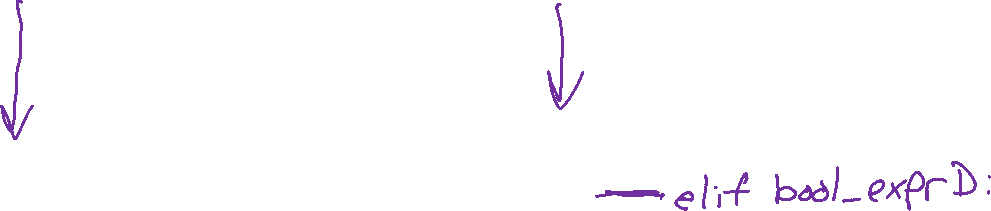 elif bool_exprD: